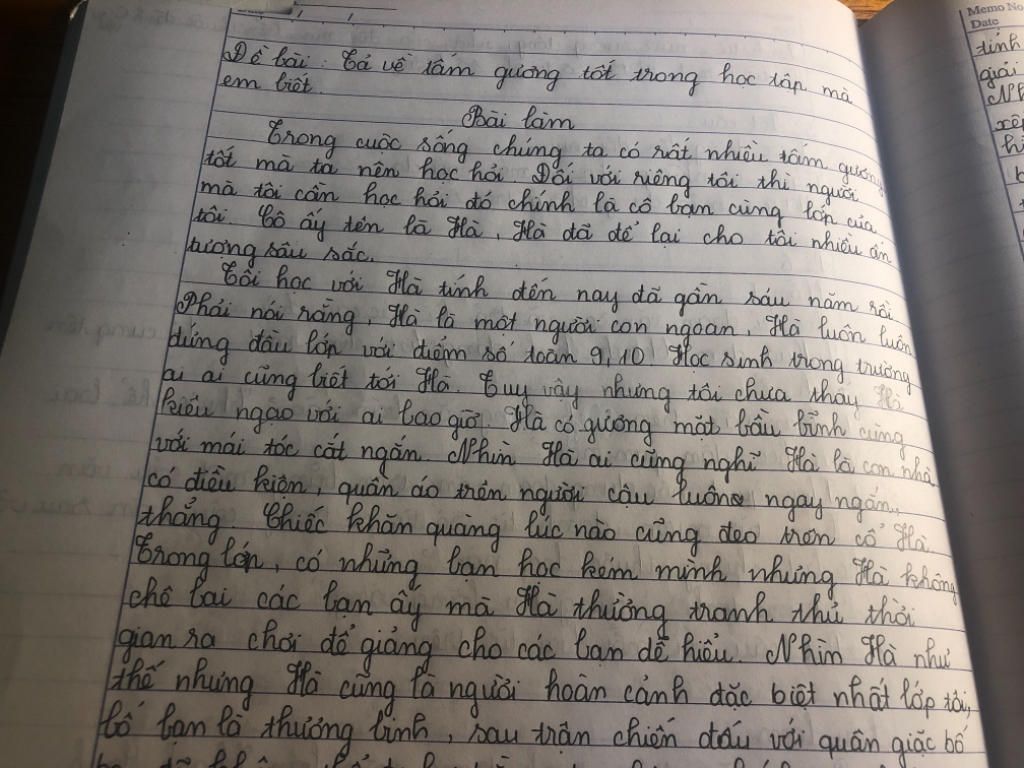 Đề bài: Tả về tấm gương tốt trong học tập mà
em biết.
Bài làm
Trong cuộc sống chúng ta có rất nhiều tấm gương
tốt mà ta nên học hỏi. Đối với riêng tôi thì người
mà tôi cần học hỏi đó chính là cô bạn cùng lớp của
tôi. Cô ấy tên là Hà, Hà đã để lại cho tôi nhiều ấn
tượng sâu sắc.
Tôi học với Hà tính đến nay đã gần sáu năm rồi.
Phải nói rằng, Hà là một người con ngoan, Hà luôn luôn
đứng đầu lớp với điểm số toàn 9, 10! Học sinh trong trường
ai ai cũng biết tới Hà. Tuy vậy nhưng tôi chưa thấy Hà
kiêu ngạo với ai bao giờ. Hà có gương mặt bầu bĩnh cùng
với mái tóc cắt ngắn. Nhìn Hà ai cũng nghĩ Hà là con nhà
có điều kiện, quần áo trên người cậu luôn ngay ngắn,
thẳng. Chiếc khăn quàng lúc nào cũng đeo trên cổ Hà.
Trong lớp, có những bạn học kém mình nhưng Hà không
chê bai các bạn ấy mà Hà thường tranh thủ thời
gian ra chơi để giảng cho các bạn dễ hiểu. Nhìn Hà như
thế nhưng Hà cũng là người hoàn cảnh đặc biệt nhất lớp tôi,
bố bạn là thương binh, sau trận chiến đấu với quân giặc bố
Memo No
Date
tính
giải